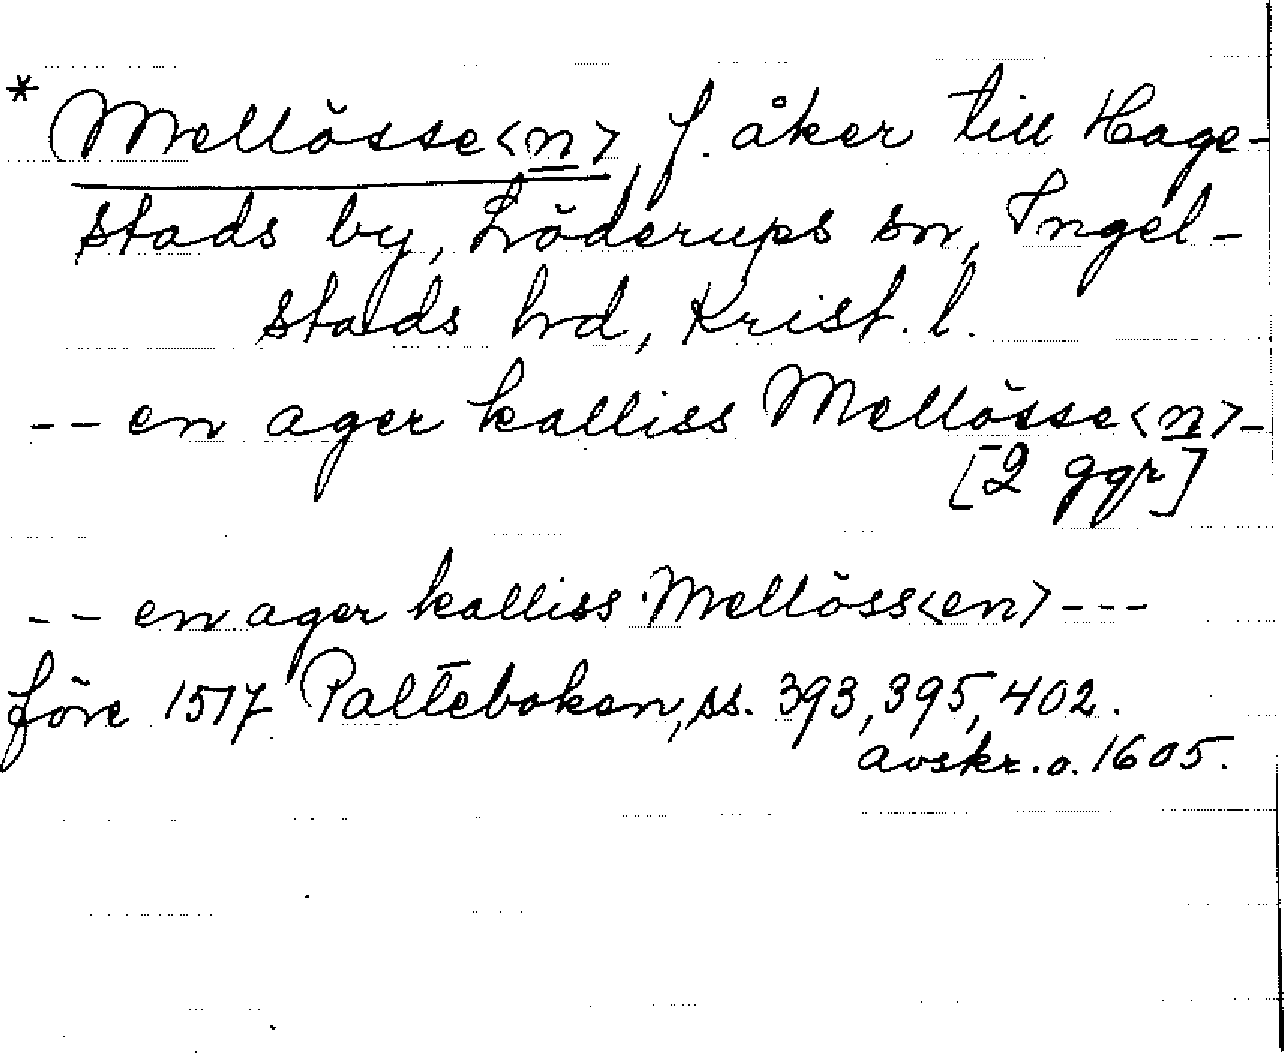 * Mellösse<n>, f. åker till Hage-
stads by, Löderups sn, Ingel-
stads hrd, Krist. l.
-- en ager kalliss Mellösse<n>-
[2 ggr]
-- en ager kalliss Mellöss<en>---
före 1517 Palteboken, ss. 393, 395, 402.
avskr. o. 1605.